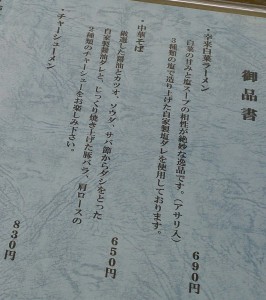 御品書
・辛来白菜ラーメン
白菜の甘みと塩スープの相性が絶妙な逸品です。（アサリ入）
３種類の塩で造り上げた自家製塩ダレを使用しております。
６９０円
・中華そば
厳選した醤油とカツオ、ソウダ、サバ節からダシをとった
自家製醤油ダレと、じっくり焼き上げた豚バラ、肩ロースの
２種類のチャーシューをお楽しみ下さい。
６５０円
・チャーシューメン
８３０円